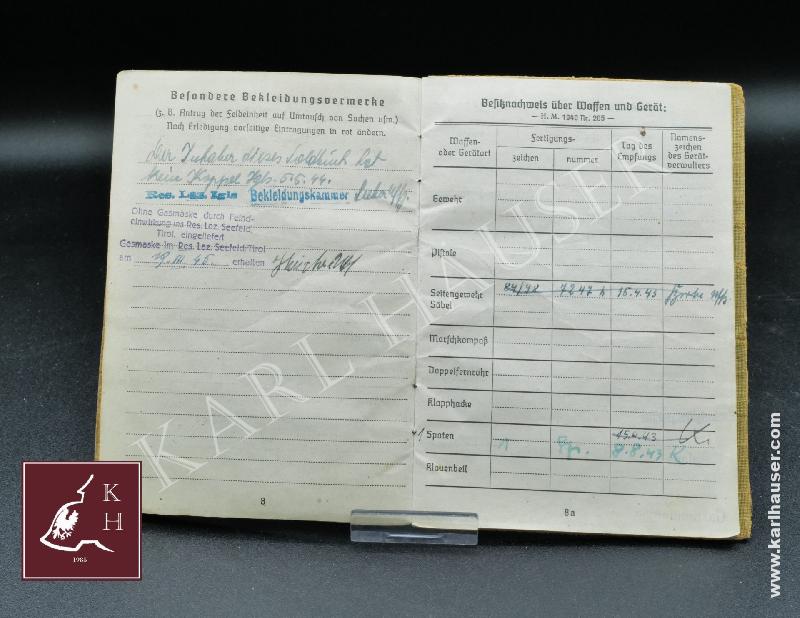 Besondere Bekleidungsvermerke
(z. B. Antrag der Feldeinheit auf Umtausch von Sachen usw.)
Nach Erledigung vorseitige Eintragungen in rot ändern.
Der Inhaber dieses Soldbuch hat
kein Koppel
Res. Laz. Igls Bekleidungskammer
Ohne Gasmaske durch Feind-
einwirkung ins Res. Laz. Seefeld,
Tirol, eingeliefert
Gasmaske im Res. Laz. Seefeld/Tirol
am 19. III. 45. erhalten
8
Besitznachweis über Waffen und Gerät:
— H. M. 1940 Nr. 205 —
Waffen- oder Gerätart
Fertigungs-
zeichen
nummer
Tag des Empfangs
Namens- zeichen des Gerät- verwalters
Gewehr
Pistole
Seitengewehr 7247 15.4.43
Säbel
Marschkompaß
Doppelfernrohr
Klapphacke
Spaten 15.4.43
8.8.43 K
Klauenbeil
8a
KARL HAUSER
K
H
1985
www.karlhauser.com